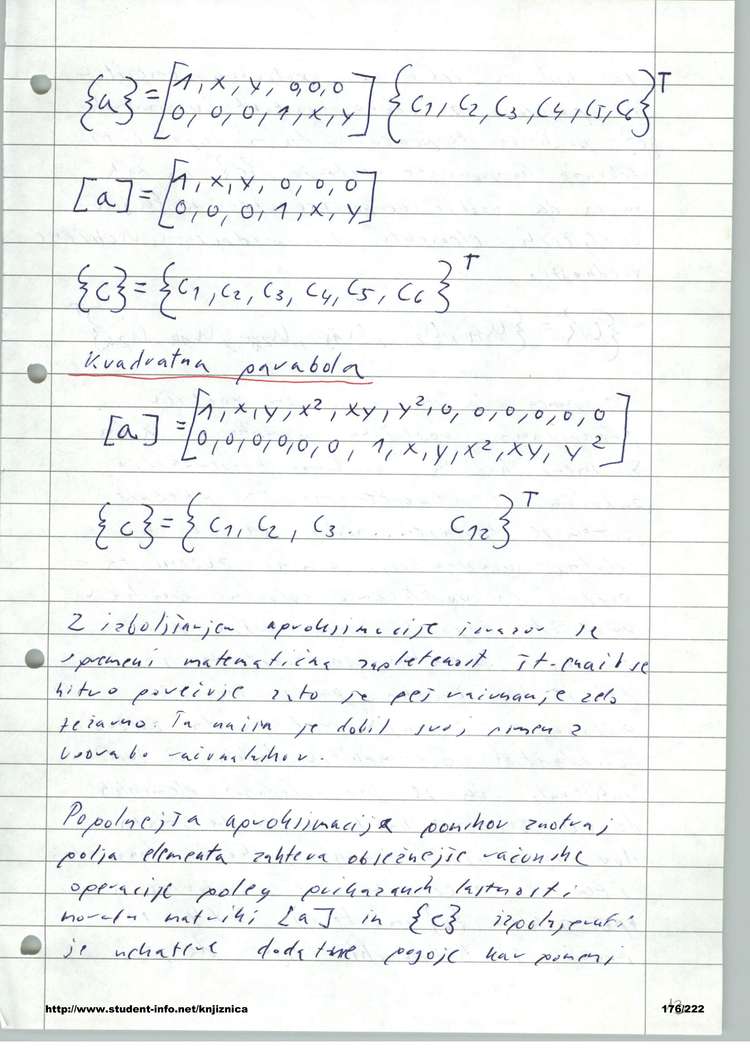 {u} = [1, x, y, 0,0,0
0, 0, 0, 1, x, y] {C1, C2, C3, C4, C5, C6}^T
[a] = [1, x, y, 0, 0, 0
0, 0, 0, 1, x, y]
{c} = {C1, C2, C3, C4, C5, C6}^T
Kvadratna parabola
[a] = [1, x, y, x², xy, y², 0, 0, 0, 0, 0, 0
0, 0, 0, 0, 0, 0, 1, x, y, x², xy, y²]
{c} = {C1, C2, C3 ..... C12}^T
Z izboljšanjem aproksimacije izrazov se
spremeni matematična zapletenost št. enačb se
hitro povečuje zato je peš računanje zelo
težavno. Ta način je dobil svoj pomen z
uporabo računalnikov.
Popolnejša aproksimacija pomikov znotraj
polja elementa zahteva obsežnejše računske
operacije poleg prikazanih lastnosti
morata matriki [a] in {c} izpolnjevati
še nekatere dodatne pogoje kar pomeni
http://www.student-info.net/knjiznica
176/222